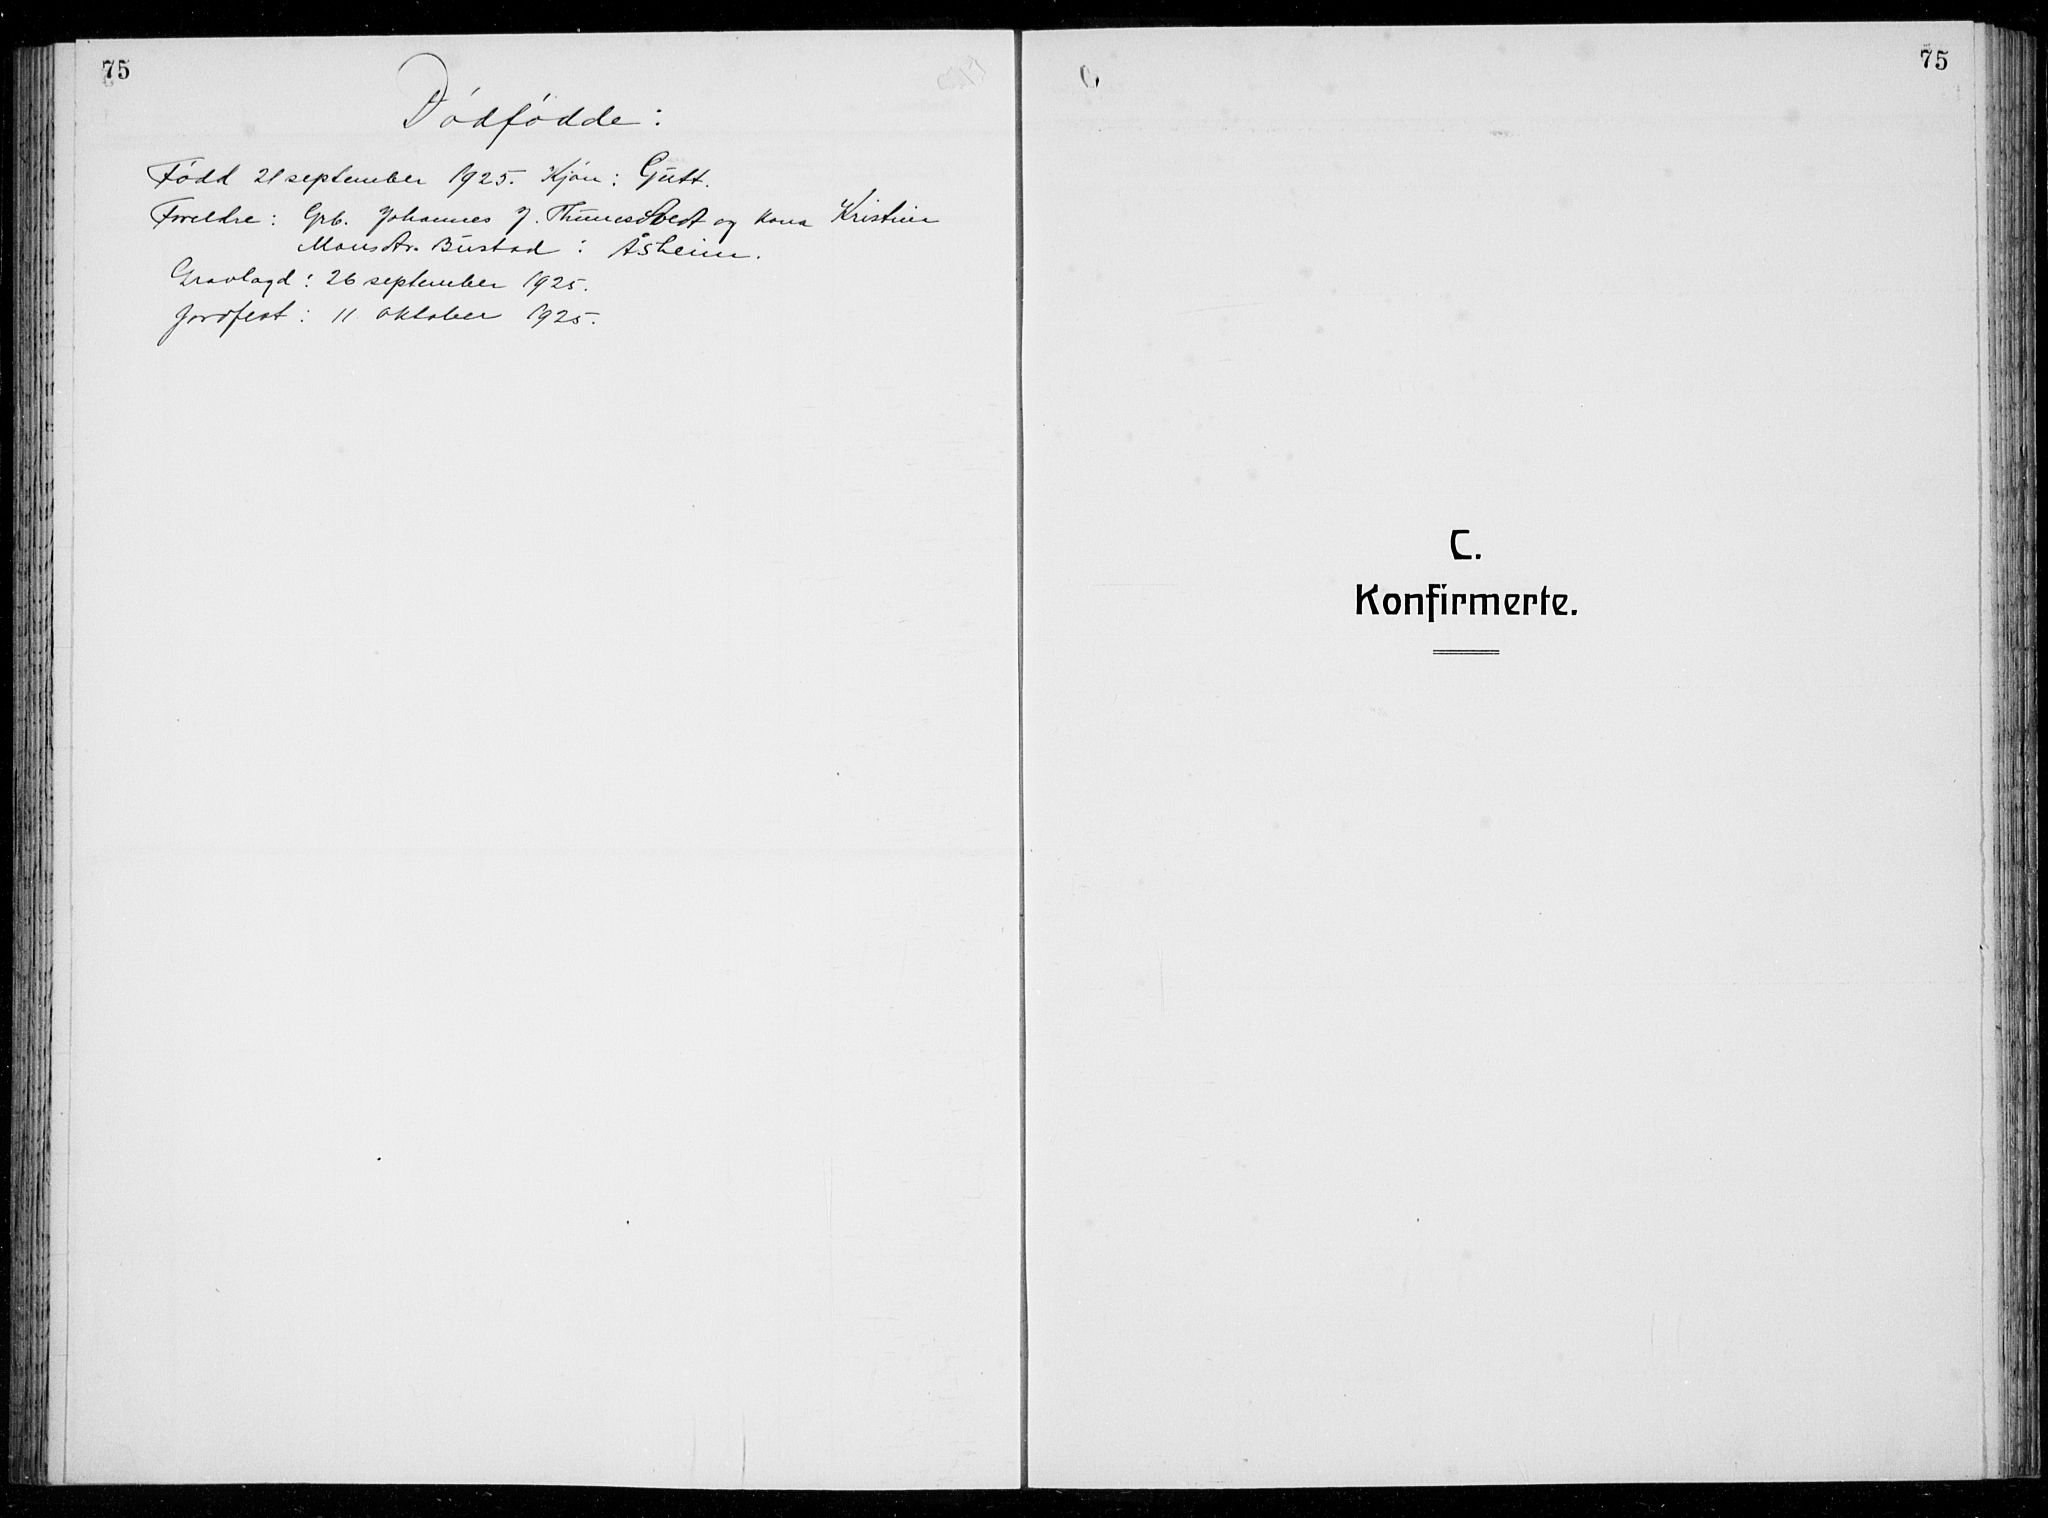 75
Dödfödde:
Född 21 september 1925. Kjön: Gutt.
Foreldre: Grb. Johannes J. og kona Kristine
Monsdtr. Bustad: Åsheim.
Gravlagd: 26 september 1925.
Jordfest: 11 oktober 1925.
75
C.
Konfirmerte.